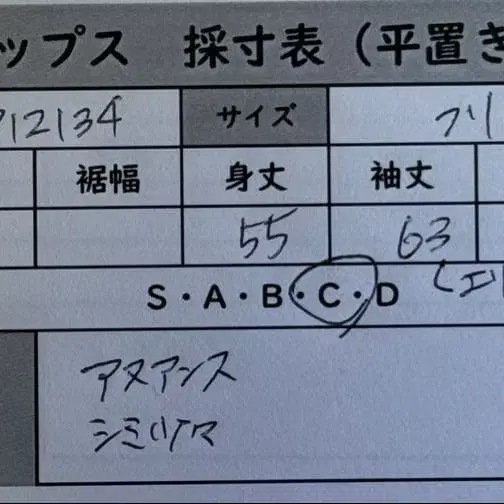 ップス 採寸表（平置き
712134 サイズ フリ
裾幅 身丈 袖丈
55 63
S・A・B・C・D (エリ
アヌアンス
シミ